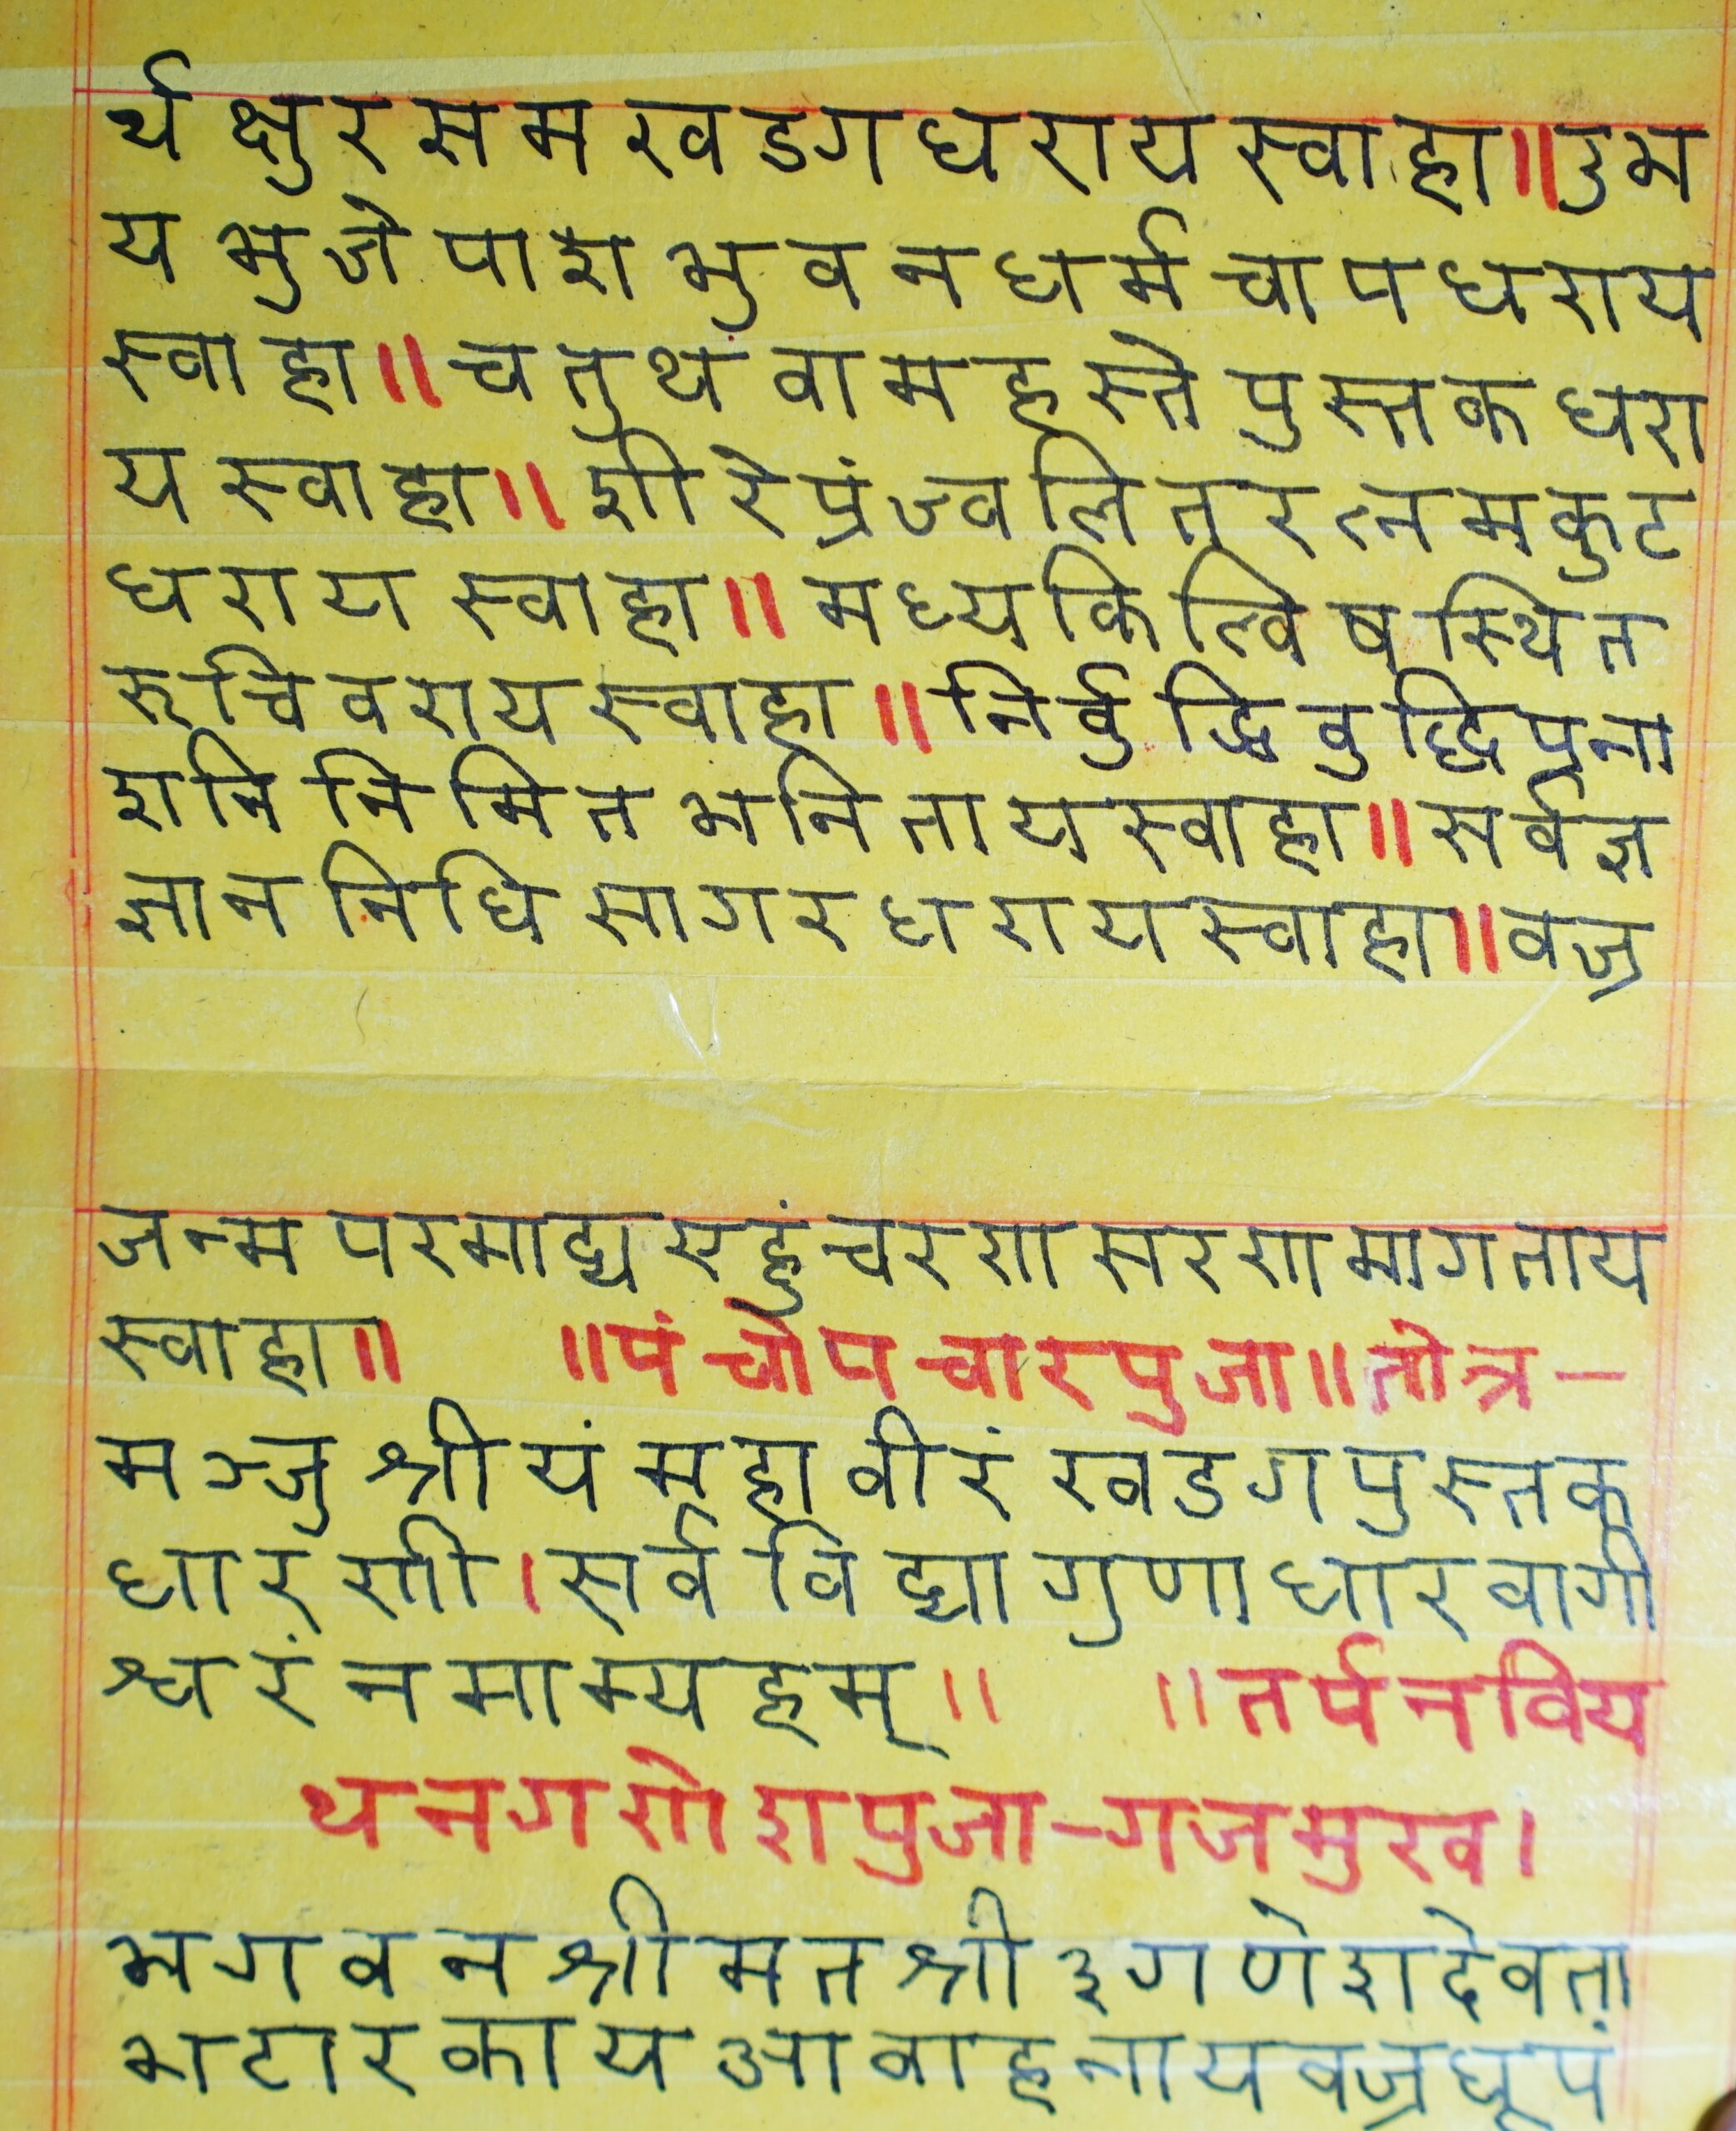 र्थ क्षुर सम खडग धराय स्वाहा॥ उभ
य भुजे पाश भुवन धार्म चाप धराय
स्वाहा॥ चतुर्थ वामहस्ते पुस्तक धरा
य स्वाहा॥ शीरे प्रंज्वलित रत्न मकुट
धराय स्वाहा॥ मध्य कित्विष स्थित
रुचि वराय स्वाहा॥ निर्वुद्धि वुद्धि प्रना
शनि निमित भनिताय स्वाहा॥ सर्वज्ञ
ज्ञान निधि सागर धाराय स्वाहा॥ वज्र
जन्म परमाद्य सहुं चरणा सरणा मागताय
स्वाहा॥ ॥पंचोपचार पुजा॥ तोत्र —
मञ्जुश्रीयं महावीरं खडग पुस्तक
धारणी। सर्व विद्या गुणाधार वागी
श्वरं नमाम्यहम्॥ ॥तर्पन विय
थन गणेश पुजा - गजमुख।
भगवन श्रीमत श्री ३ गणेश देवता
भटारकाय आवाहनाय वज्र धूपं